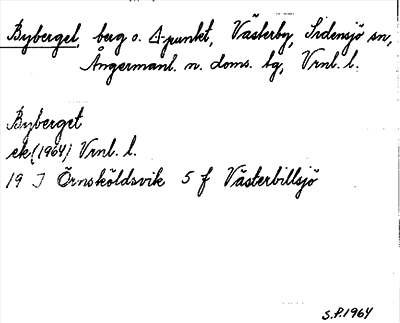 Byberget, berg o. Δ-punkt, Västerby, Sidensjö sn,
Ångermanl. n. doms. tg, Vrnl. l.
Byberget
ek. (1964) Vrnl. l.
19 J Örnsköldsvik 5 f Västerbillsjö
S.P. 1964